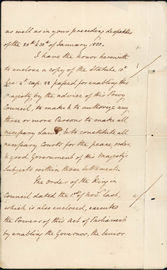 as well as in your preceding despatches
of the 20th & 21st of January 1822.
I have the honor herewith
to enclose a copy of the Statute,
cap. 13 passed for enabling His
Majesty by the advice of His Privy
Council, to make & to authorize any
three or more Persons to make all
necessary Laws & to constitute all
necessary Courts for the peace, order,
& good Government of His Majesty's
Subjects within those settlements.
The order of the King in
Council dated the 11th of Novr last,
which is also enclosed, executes
the Powers of this Act of Parliament
by enabling the Governor, the Senior